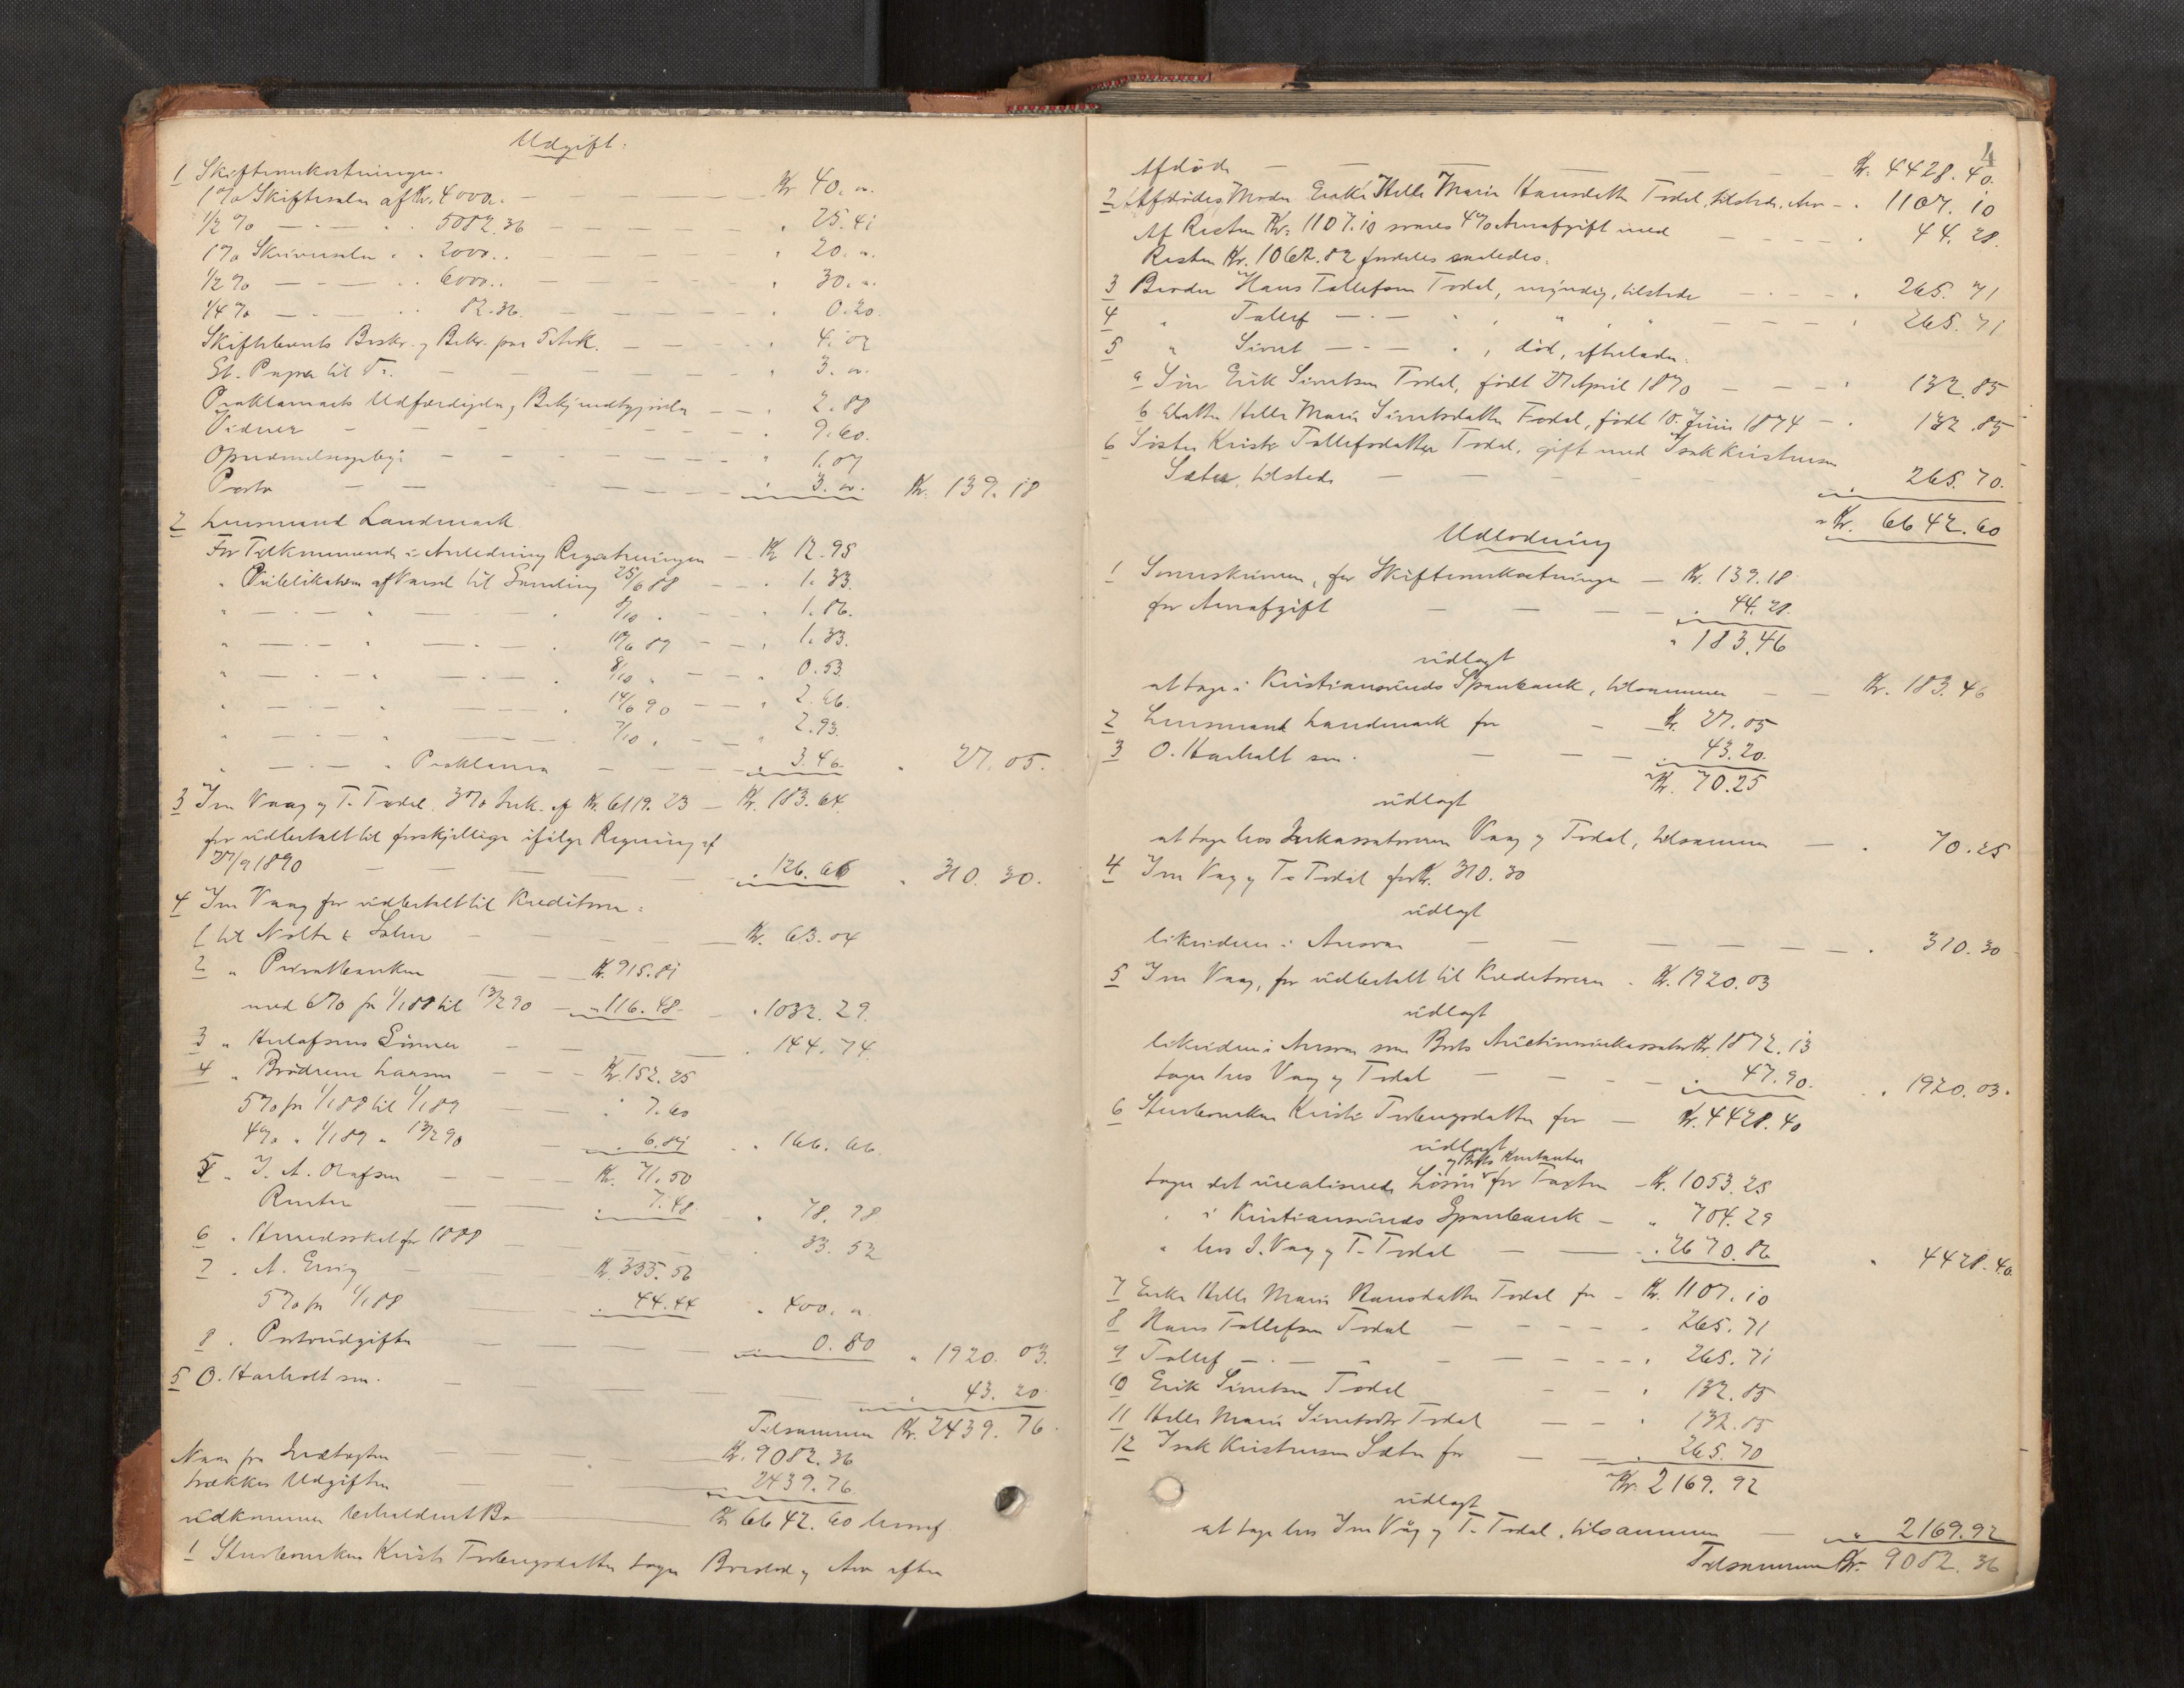 Udgift:
1 Skifteomkostninger.
1% Skiftesalær af Kr. 4000.. — Kr. 40. „.
1/2 % — 5082.36 — „ 25.41
1% Skriversalær „ „ 2000.. — „ 20. „.
1/2 % — 6000.. — „ 30. „.
1/4 % — 82.36. — „ 0.20.
Skiftebrevets Beskr. og Bekr. paa 5 Ark. — „ 4.02
St. Papir til Do. — „ 3. „.
Proklamaets Udfærdigelse og Bekjendtgjørelse — „ 2.88
Vidner — „ 9.60.
Opnævnelsesgebyr — „ 1.07
Porto — „ 3. „. Kr. 139.18
2 Lensmand Landmark
For Tilkommende i Anledning Registreringen — Kr. 12.95
„ Publikation af Varsel til Samling 25/6 88 — „ 1.33.
„ — „ — 8/10 „ — „ 1.86.
„ — „ — 10/6 89 — „ 1.33.
„ — „ — 8/10 „ — „ 0.53.
„ — „ — 14/6 90 — „ 2.66.
„ — „ — 7/10 „ — „ 2.93.
„ — „ Proklama — „ 3.46. „ 27.05.
3 Iver Vaag og T. Todal. 3% Ink. af Kr. 6119.23 — Kr. 183.64
for udbetalt til forskjellige ifølge Regning af
27/9 1890 — „ 126.66 „ 310.30.
4 Iver Vaag for udbetalt til Kreditorer:
1 til Nolte & Sohn — Kr. 63.04
2 „ Privatbanken — Kr. 915.81
med 6% fra 1/1 88 til 13/2 90 — „ 116.48 — „ 1032.29.
3 „ Sønner — „ 144.74.
4 „ Brødrene Larsen — Kr. 152.25
5% fra 1/1 88 til 1/1 89 — „ 7.60
4% „ 1/1 89 „ 13/2 90 — „ 6.81 „ 166.66.
5 „ J. A. Olafsen — Kr. 71.50
Renter — „ 7.48 „ 78.98
6 „ Herredsskat for 1888 — „ 33.52
7 „ A. — Kr. 355.56
5% fra 1/1 88 — „ 44.44 „ 400. „.
8 „ Portoudgifter — „ 0.80 „ 1920.03.
5 O. Harholt sen. — „ 43.20
Tilsammen Kr. 2439.76.
Naar fra Indtægten — Kr. 9082.36
trækkes Udgiften — „ 2439.76.
udkommer beholdent Bo — Kr. 6642.60 hvoraf
1 Sterbenken Kristi Torbergsdatter tager Boeslod og Arv efter
4
Afdøde — Kr. 4428.40.
2 Afdødes Moder Enke Helle Marie Hansdatter Todal, tilstede, Arv — „ 1107.10
Af Resten Kr. 1107.10 svares 4% Arveafgift med — „ 44.28.
Resten Kr. 1062.82 fordeles saaledes.
3 Broder Hans Tollefsen Todal, myndig, tilstede — „ 265.71
4 „ Tollef — „ „ „ — „ 265.71
5 „ Sivert — „ , død, efterlader.
a Søn Erik Sivertsen Todal, født 27 April 1870 — „ 132.85
b Datter Helle Marie Sivertsdatter Todal, født 10. Juni 1874 — „ 132.85
6 Søster Kristi Tollefsdatter Todal, gift med Isak Kristensen
Sæter, tilstede — „ 265.70.
Kr. 6642.60
Udlodning
1 Sorenskriveren, for Skifteomkostninger — Kr. 139.18
for Arveafgift — „ 44.28.
„ 183.46
udlagt
at tage i Kristiansunds Sparebank, tilsammen — Kr. 183.46
2 Lensmand Landmark for — Kr. 27.05
3 O. Harholt sen. — „ 43.20.
Kr. 70.25
udlagt
at tage hos Inkassatorerne Vaag og Todal, tilsammen — „ 70.25
4 Iver Vaag og T. Todal for Kr. 310.30
udlagt
likviderer i Ansvar — „ 310.30
5 Iver Vaag, for udbetalt til Kreditorerne „ Kr. 1920.03
udlagt
likviderer i Ansvar som Boets Auctionsinkassator Kr. 1872.13
tager hos Vaag og Todal — „ 47.90. „ 1920.03.
6 Sterbenken Kristi Torbergsdatter for — Kr. 4428.40
udlagt
og Boets Kontanter
tager det urealiserede Løsøre for Taxten — Kr. 1053.25
„ i Kristiansunds Sparebank — „ 704.29
„ hos I. Vaag og T. Todal — „ 2670.86 „ 4428.40.
7 Enke Helle Marie Hansdatter Todal for — Kr. 1107.10
8 Hans Tollefsen Todal — „ 265.71
9 Tollef — „ 265.71
10 Erik Sivertsen Todal — „ 132.85
11 Helle Marie Sivertsdtr Todal — „ 132.85
12 Isak Kristensen Sæter for — „ 265.70
Kr. 2169.92
udlagt
at tage hos Iver Våg og T. Todal, tilsammen — „ 2169.92
Tilsammen Kr. 9082.36